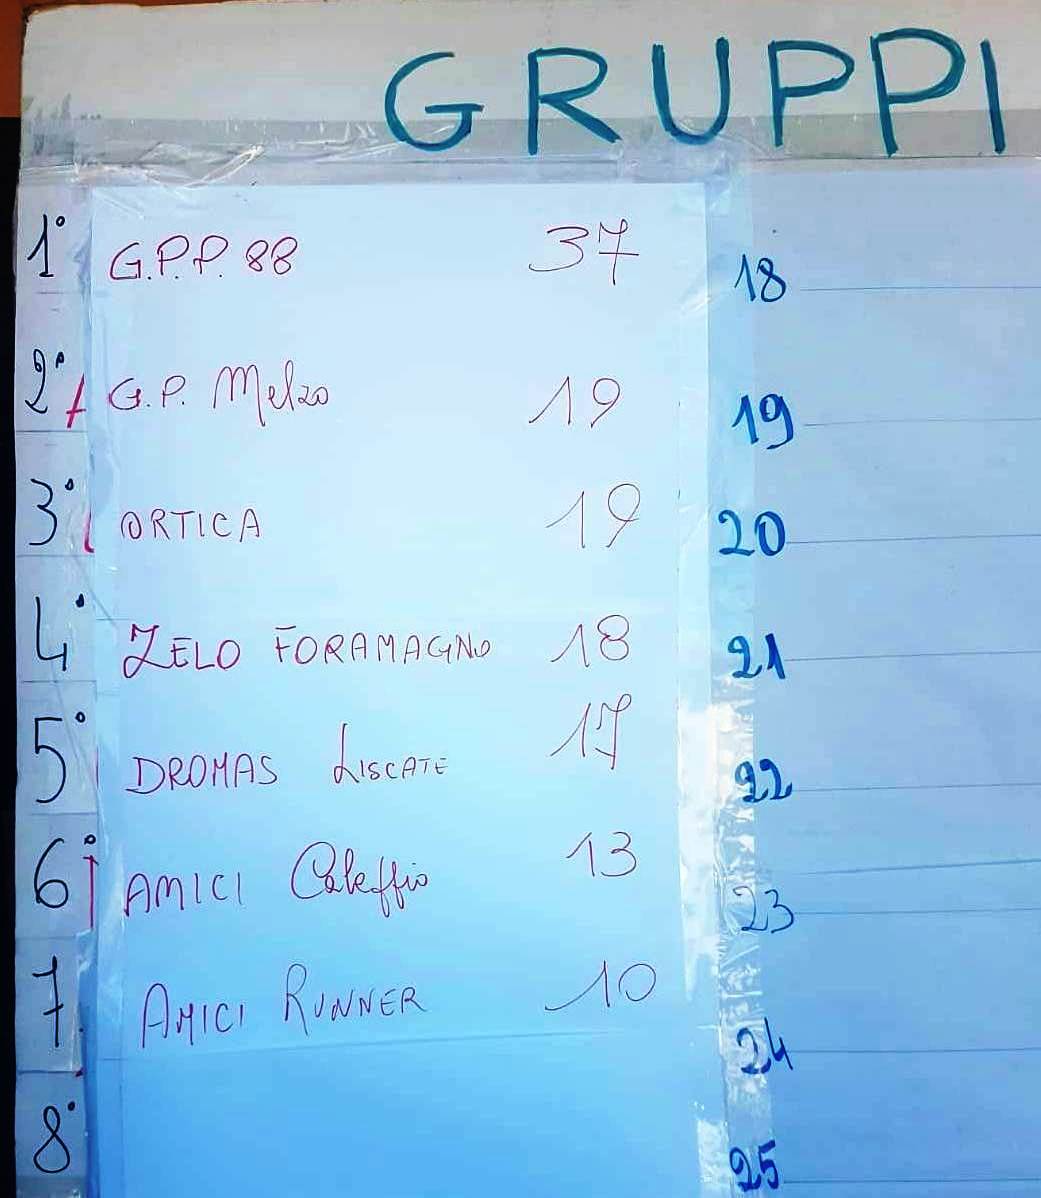 GRUPPI
1° G.P.P. 88 37
2° G.P. Melzo 19
3° ORTICA 19
4° ZELO FORAMAGNO 18
5° DROMAS LISCATE 17
6° AMICI Caleffio 13
7 AMICI RUNNER 10
8°
18
19
20
21
22
23
24
25